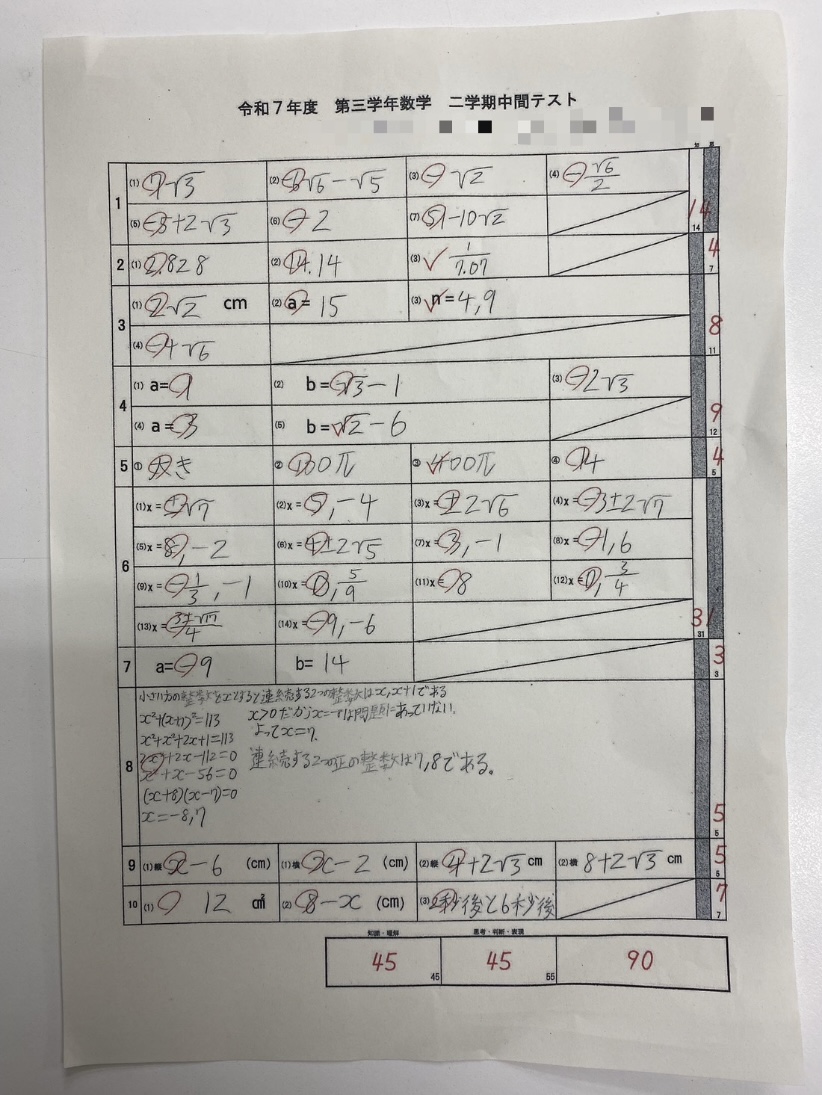 令和7年度 第三学年数学 二学期中間テスト
1 (1) 7√3 (2) -6√6-√5 (3) -√2 (4) -√6/2 14
(5) -8+2√3 (6) -2 (7) 51-10√2 14
2 (1) 2.828 (2) 14.14 (3) 1/7.07 4 7
3 (1) 2√2 cm (2) a= 15 (3) n=4,9 8
(4) -4√6 11
4 (1) a= 1 (2) b=√3-1 (3) -2√3 9
(4) a=3 (5) b=√2-6 12
5 ① 大き ② 100π ③ 400π ④ 14 4 5
6 (1)x=±√7 (2)x=5,-4 (3)x=±2√6 (4)x=-3±2√7
(5)x=8,-2 (6)x=4±2√5 (7)x=3,-1 (8)x=-1,6
(9)x=-1/3,-1 (10)x=0,5/9 (11)x=8 (12)x=0,3/4
(13)x=3±√17/4 (14)x=-9,-6 31 31
7 a=-9 b=14 3 3
8 小さい方の整数をxとすると連続する2つの整数はx,x+1である
x²+(x+1)²=113 x>0だからx=-8は問題にあっていない。
x²+x²+2x+1=113 よってx=7。
2x²+2x-112=0 連続する2つの正の整数は7,8である。
x²+x-56=0
(x+8)(x-7)=0
x=-8,7 5 5
9 (1)縦 x-6 (cm) (1)横 x-2 (cm) (2)縦 4+2√3 cm (2)横 8+2√3 cm 5 5
10 (1) 12 cm² (2) 8-x (cm) (3) 2秒後と6秒後 7 7
知識・理解 思考・判断・表現
45 45 45 55 90